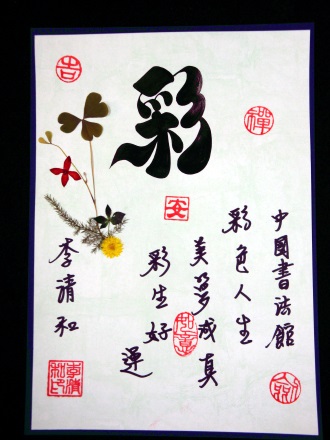 彩
中國書法館
彩色人生
美夢成真
彩生好運
李清和
吉
禪
安
如意
李清和印